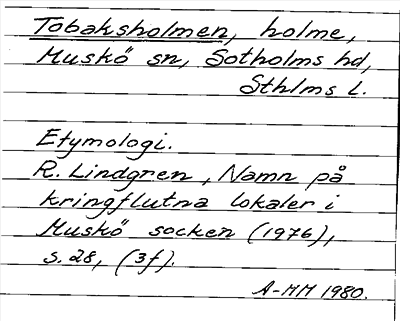 Tobaksholmen, holme,
Muskö sn, Sotholms hd,
Sthlms l.
Etymologi.
R. Lindgren, Namn på
kringflutna lokaler i
Muskö socken (1976),
s. 28, (3f).
A-MM 1980.